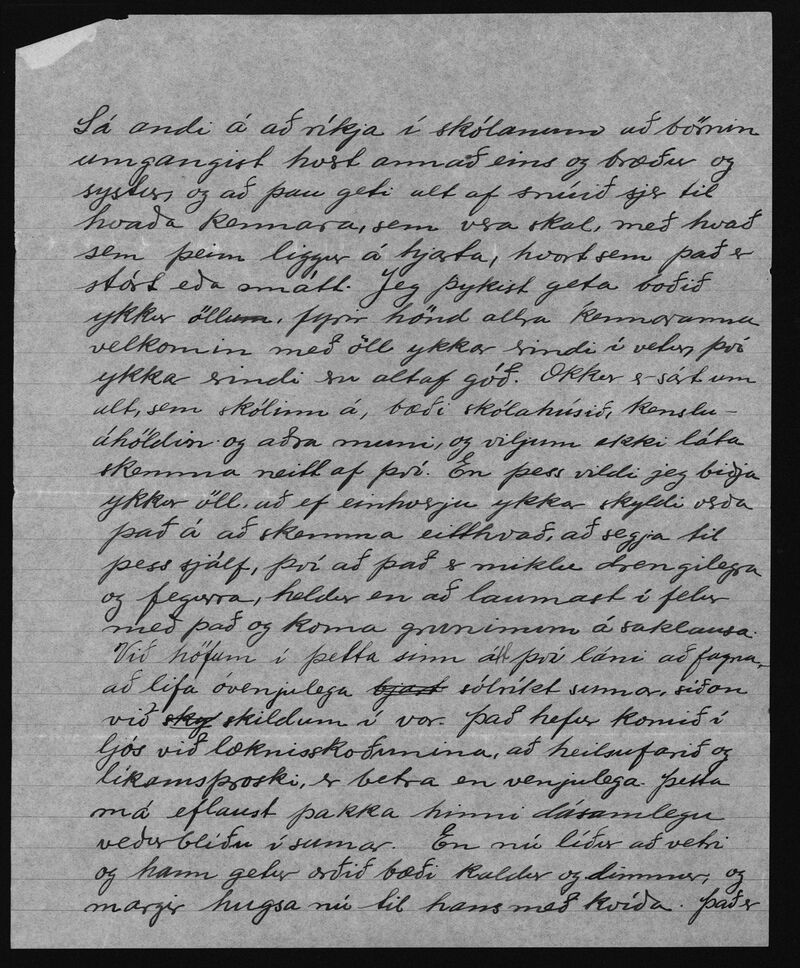 Sá andi á að ríkja í skólanum að börnin
umgangist hvert annað eins og bræður og
systur, og að þau geti alt af snúið sjer til
hvaða kennara, sem vera skal, með hvað
sem þeim liggur á hjarta, hvort sem það er
stórt eða smátt. Jeg þykist geta boðið
ykkur öllum, fyrir hönd allra kennaranna
velkomin með öll ykkar erindi í vetur, því
ykkar erindi eru altaf góð. Okkur er sárt um
alt, sem skólinn á, bæði skólahúsið, kenslu-
áhöldin og aðra muni, og viljum ekki láta
skemma neitt af því. En þess vildi jeg biðja
ykkur öll, að ef einhverju ykkar skyldi verða
það á að skemma eitthvað, að segja til
þess sjálf, því að það er miklu drengilegra
og fegurra, heldur en að laumast í felur
með það og koma grunimum á saklausa.
Við höfum í þetta sinn átt því láni að fagna,
að lifa óvenjulega bjart sólríkt sumar, síðan
við sky skildum í vor. Það hefur komið í
ljós við læknisskoðunina, að heilsufarið og
líkamsþroski, er betra en venjulega. Þetta
má eflaust þakka hinni dásamlegu
veðurblíðu í sumar. En nú líður að vetri
og hann getur orðið bæði kaldur og dimmur, og
margir hugsa nú til hans með kvíða. Það er